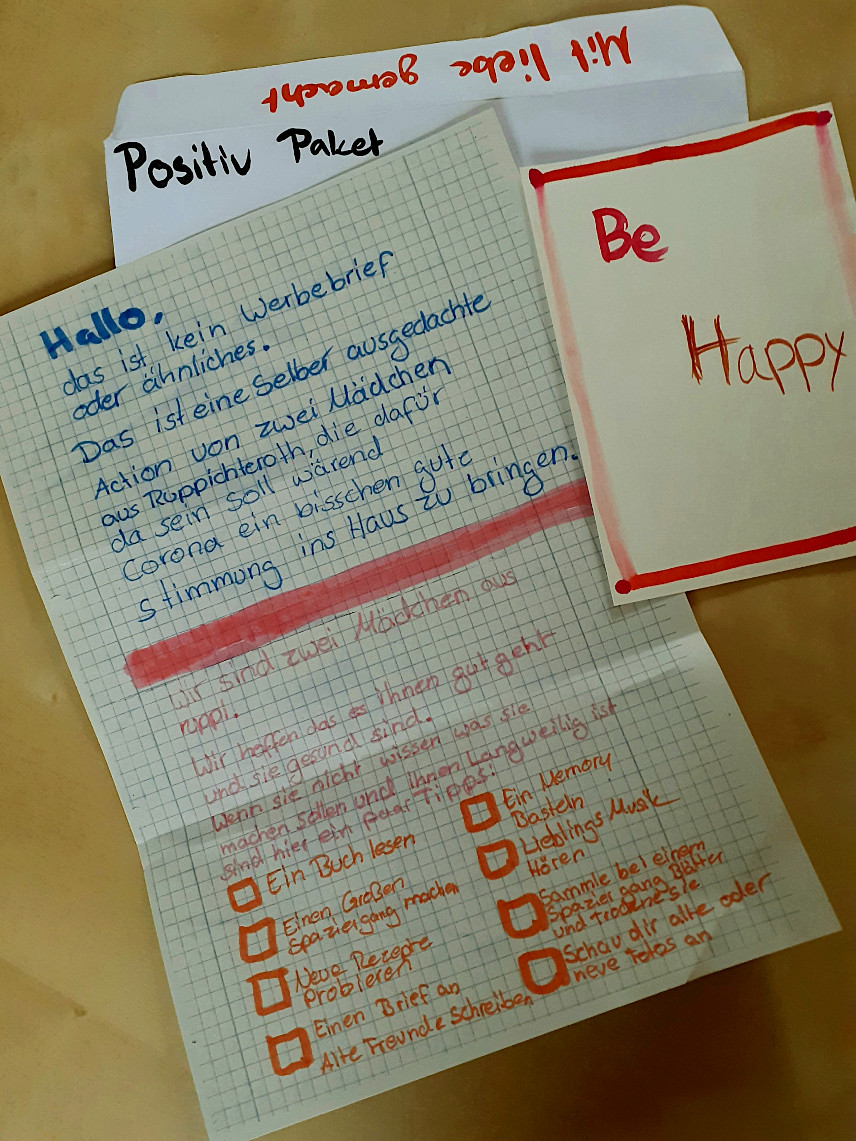 Mit liebe gemacht
Positiv Paket
Be
Happy
Hallo,
das ist kein Werbebrief
oder ähnliches.
Das ist eine Selber ausgedachte
Action von zwei Mädchen
aus Ruppichteroth, die dafür
da sein soll wärend
Corona ein bisschen gute
Stimmung ins Haus zu bringen.
Wir sind zwei Mädchen aus
ruppi.
Wir hoffen das es ihnen gut geht
und sie gesund sind.
Wenn sie nicht wissen was sie
machen sollen und ihnen Langweilig ist
sind hier ein paar Tipps:
Ein Buch lesen
Einen Großen
Spaziergang machen
Neue Rezepte
Probieren
Einen Brief an
Alte Freunde schreiben
Ein Memory
Basteln
Lieblings Musik
Hören
Sammle bei einem
Spaziergang Blätter
und trockne sie
Schau dir alte oder
neue Fotos an